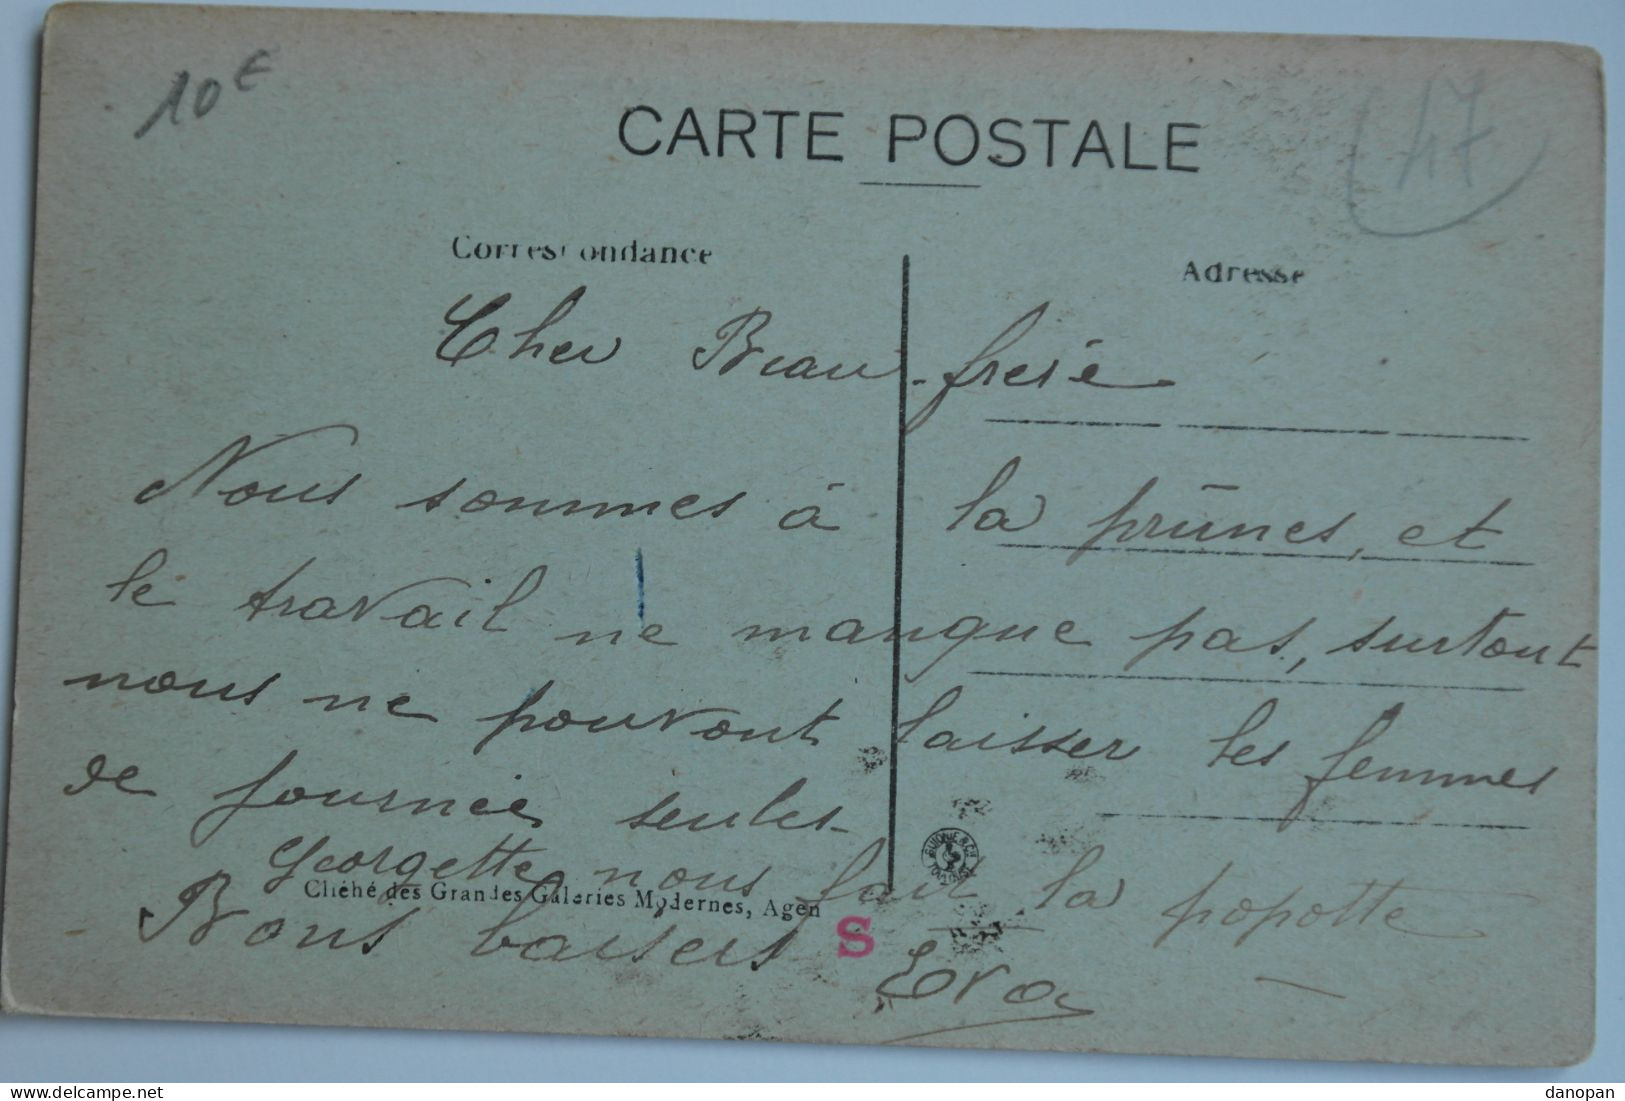 10€
47
CARTE POSTALE
Correspondance
Adresse
Cher Beau-frère
Nous sommes à la prunes, et
le travail ne manque pas, surtout
nous ne pouvont laisser les femmes
de journée seules
Georgette nous fait la popotte
Cliché des Grandes Galeries Modernes, Agen
Bons baisers
S
Eva
danopan